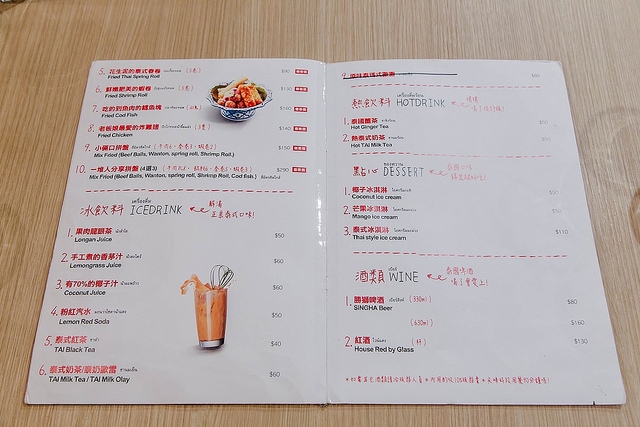 5. 花生泥的泰式春卷 (3卷) $90
Fried Thai Spring Roll
6. 鮮嫩肥美的蝦卷 $130
Fried Shrimp Roll
7. 吃的到魚肉的鱈魚塊 $160
Fried Cod Fish
8. 老板娘最愛的炸雞翅 $140
Fried Chicken
9. 小倆口拼盤 $150
Mix Fried (Beef Balls, Wanton, spring roll, Shrimp Roll.)
10. 一堆人分享拼盤 (4選3) $290
Mix Fried (Beef Balls, Wanton, spring roll, Shrimp Roll, Cod fish.)
冰飲料 เครื่องดื่ม ICEDRINK
解渴
正素泰式口味!
1. 果肉龍眼茶 $50
Longan Juice
2. 手工煮的香茅汁 $60
Lemongrass Juice
3. 有70%的椰子汁 $60
Coconut Juice
4. 粉紅汽水 $50
Lemon Red Soda
5. 泰式紅茶 $40
TAI Black Tea
6. 泰式奶茶/泰奶歐蕾 $60
TAI Milk Tea / TAI Milk Olay
熱飲料 HOTDRINK
1. 泰國薑茶
Hot Ginger Tea
2. 熱泰式奶茶
Hot TAI Milk Tea
點心 DESSERT
1. 椰子冰淇淋
Coconut ice cream
2. 芒果冰淇淋
Mango ice cream
3. 泰式冰淇淋 $110
Thai style ice cream
酒類 WINE
泰國啤酒
1. 勝獅啤酒 (330ml) $80
SINGHA Beer
(630ml) $160
2. 紅酒 (杯) $130
House Red by Glass